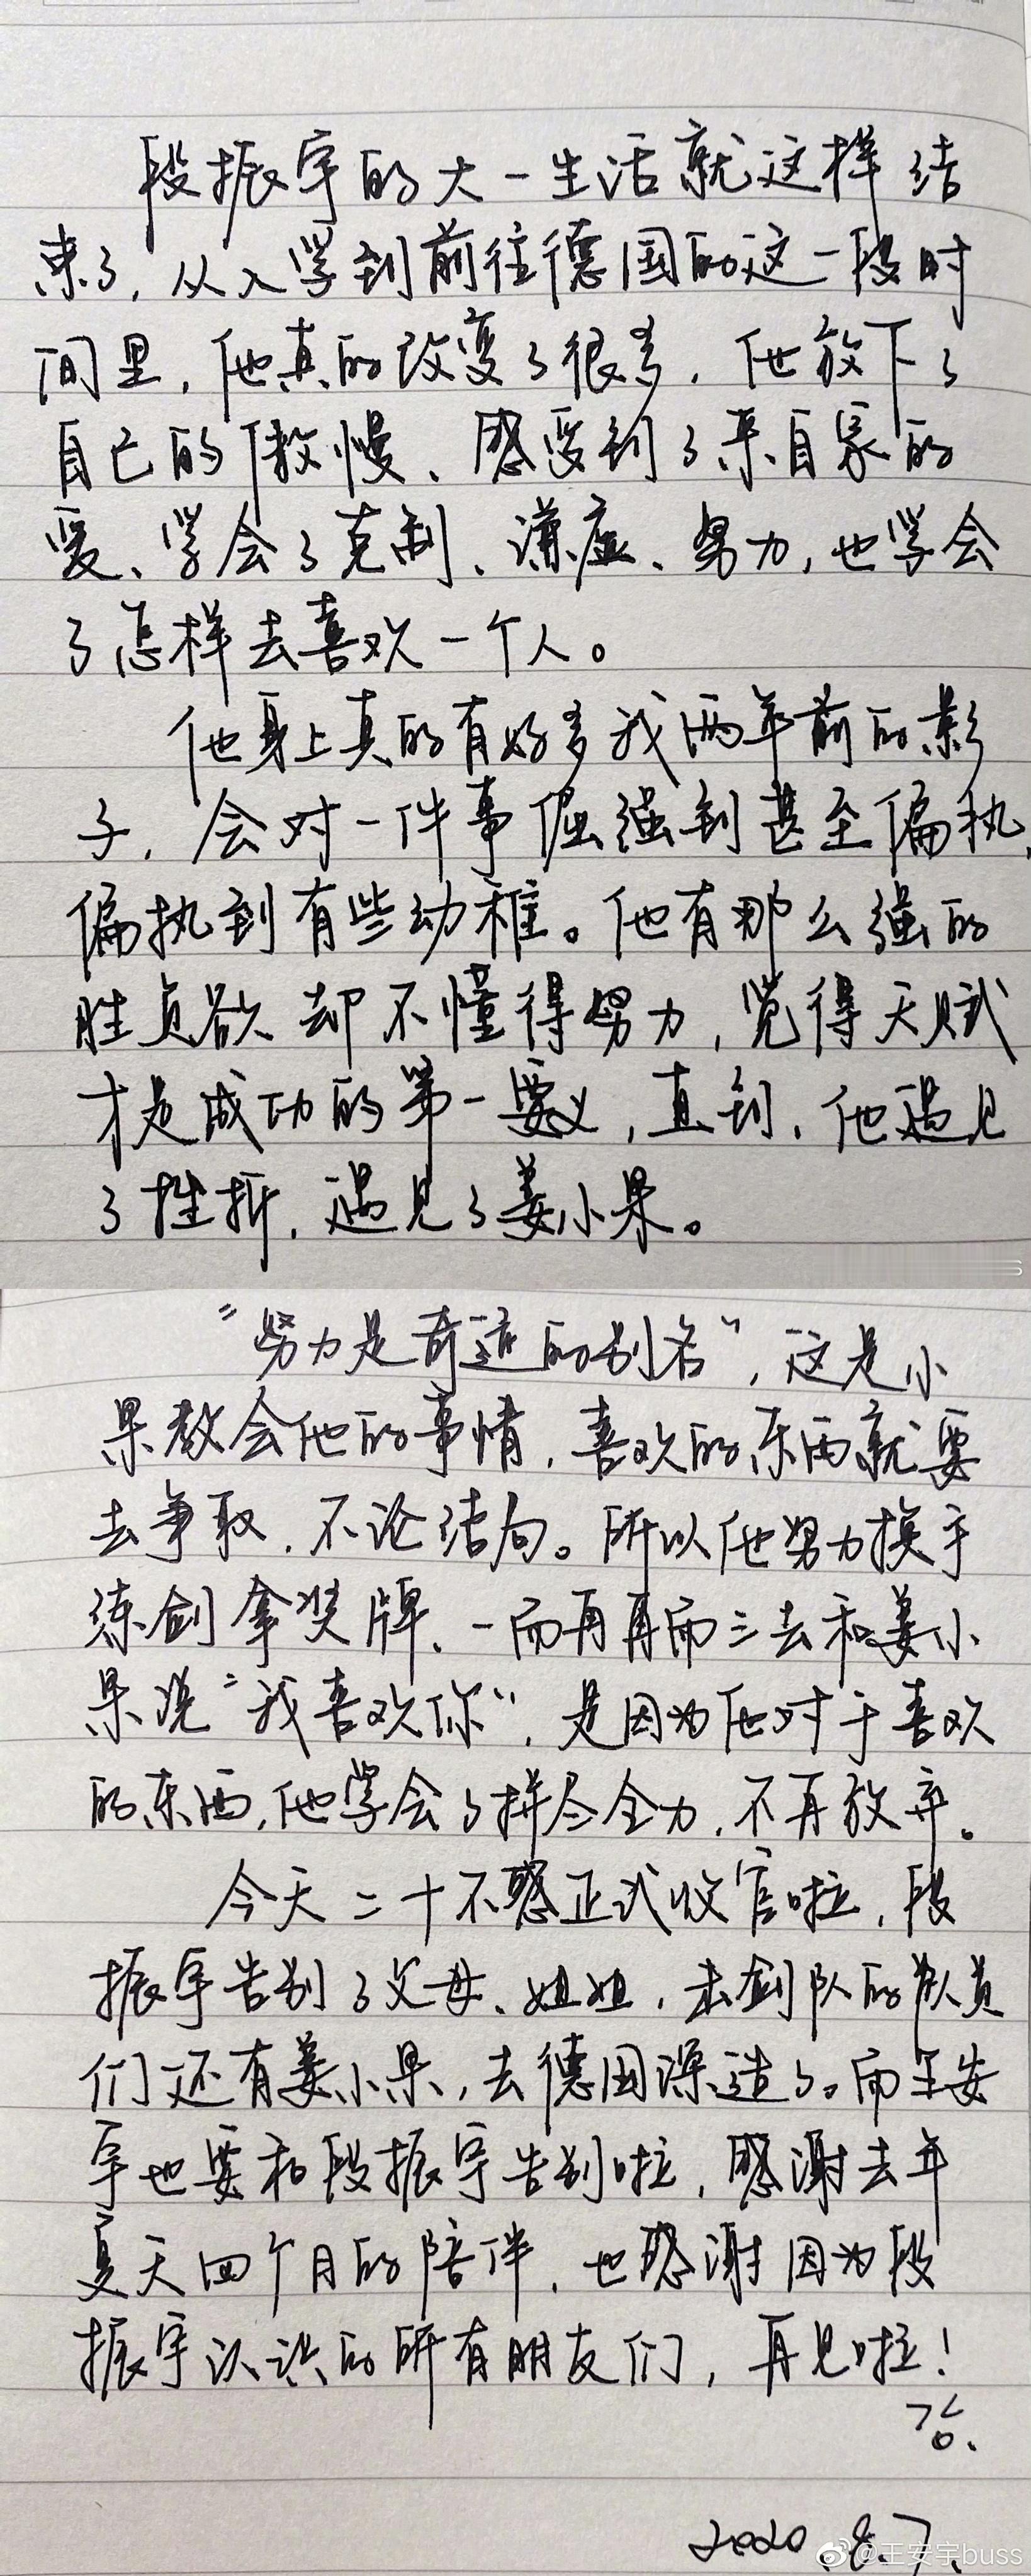 段振宇的大一生活就这样结
束了，从入学到前往德国的这一段时
间里，他真的改变了很多，他放下了
自己的傲慢、感受到了来自家的
爱、学会了克制、谦虚、努力，也学会
了怎样去喜欢一个人。
他身上真的有好多我两年前的影
子，会对一件事倔强到甚至偏执，
偏执到有些幼稚。他有那么强的
胜负欲却不懂得努力，觉得天赋
才是成功的第一要义，直到，他遇见
了挫折，遇见了姜小果。
“努力是奇迹的别名”，这是小
果教会他的事情，喜欢的东西就要
去争取，不论结局。所以他努力换手
练剑拿奖牌、一而再再而三去和姜小
果说“我喜欢你”，是因为他对于喜欢
的东西，他学会了拼尽全力，不再放弃。
今天二十不惑正式收官啦，段
振宇告别了父母、姐姐，击剑队的队员
们还有姜小果，去德国深造了。而王安
宇也要和段振宇告别啦，感谢去年
夏天四个月的陪伴，也感谢因为段
振宇认识的所有朋友们，再见啦！
2020.8.7.
@王安宇buss